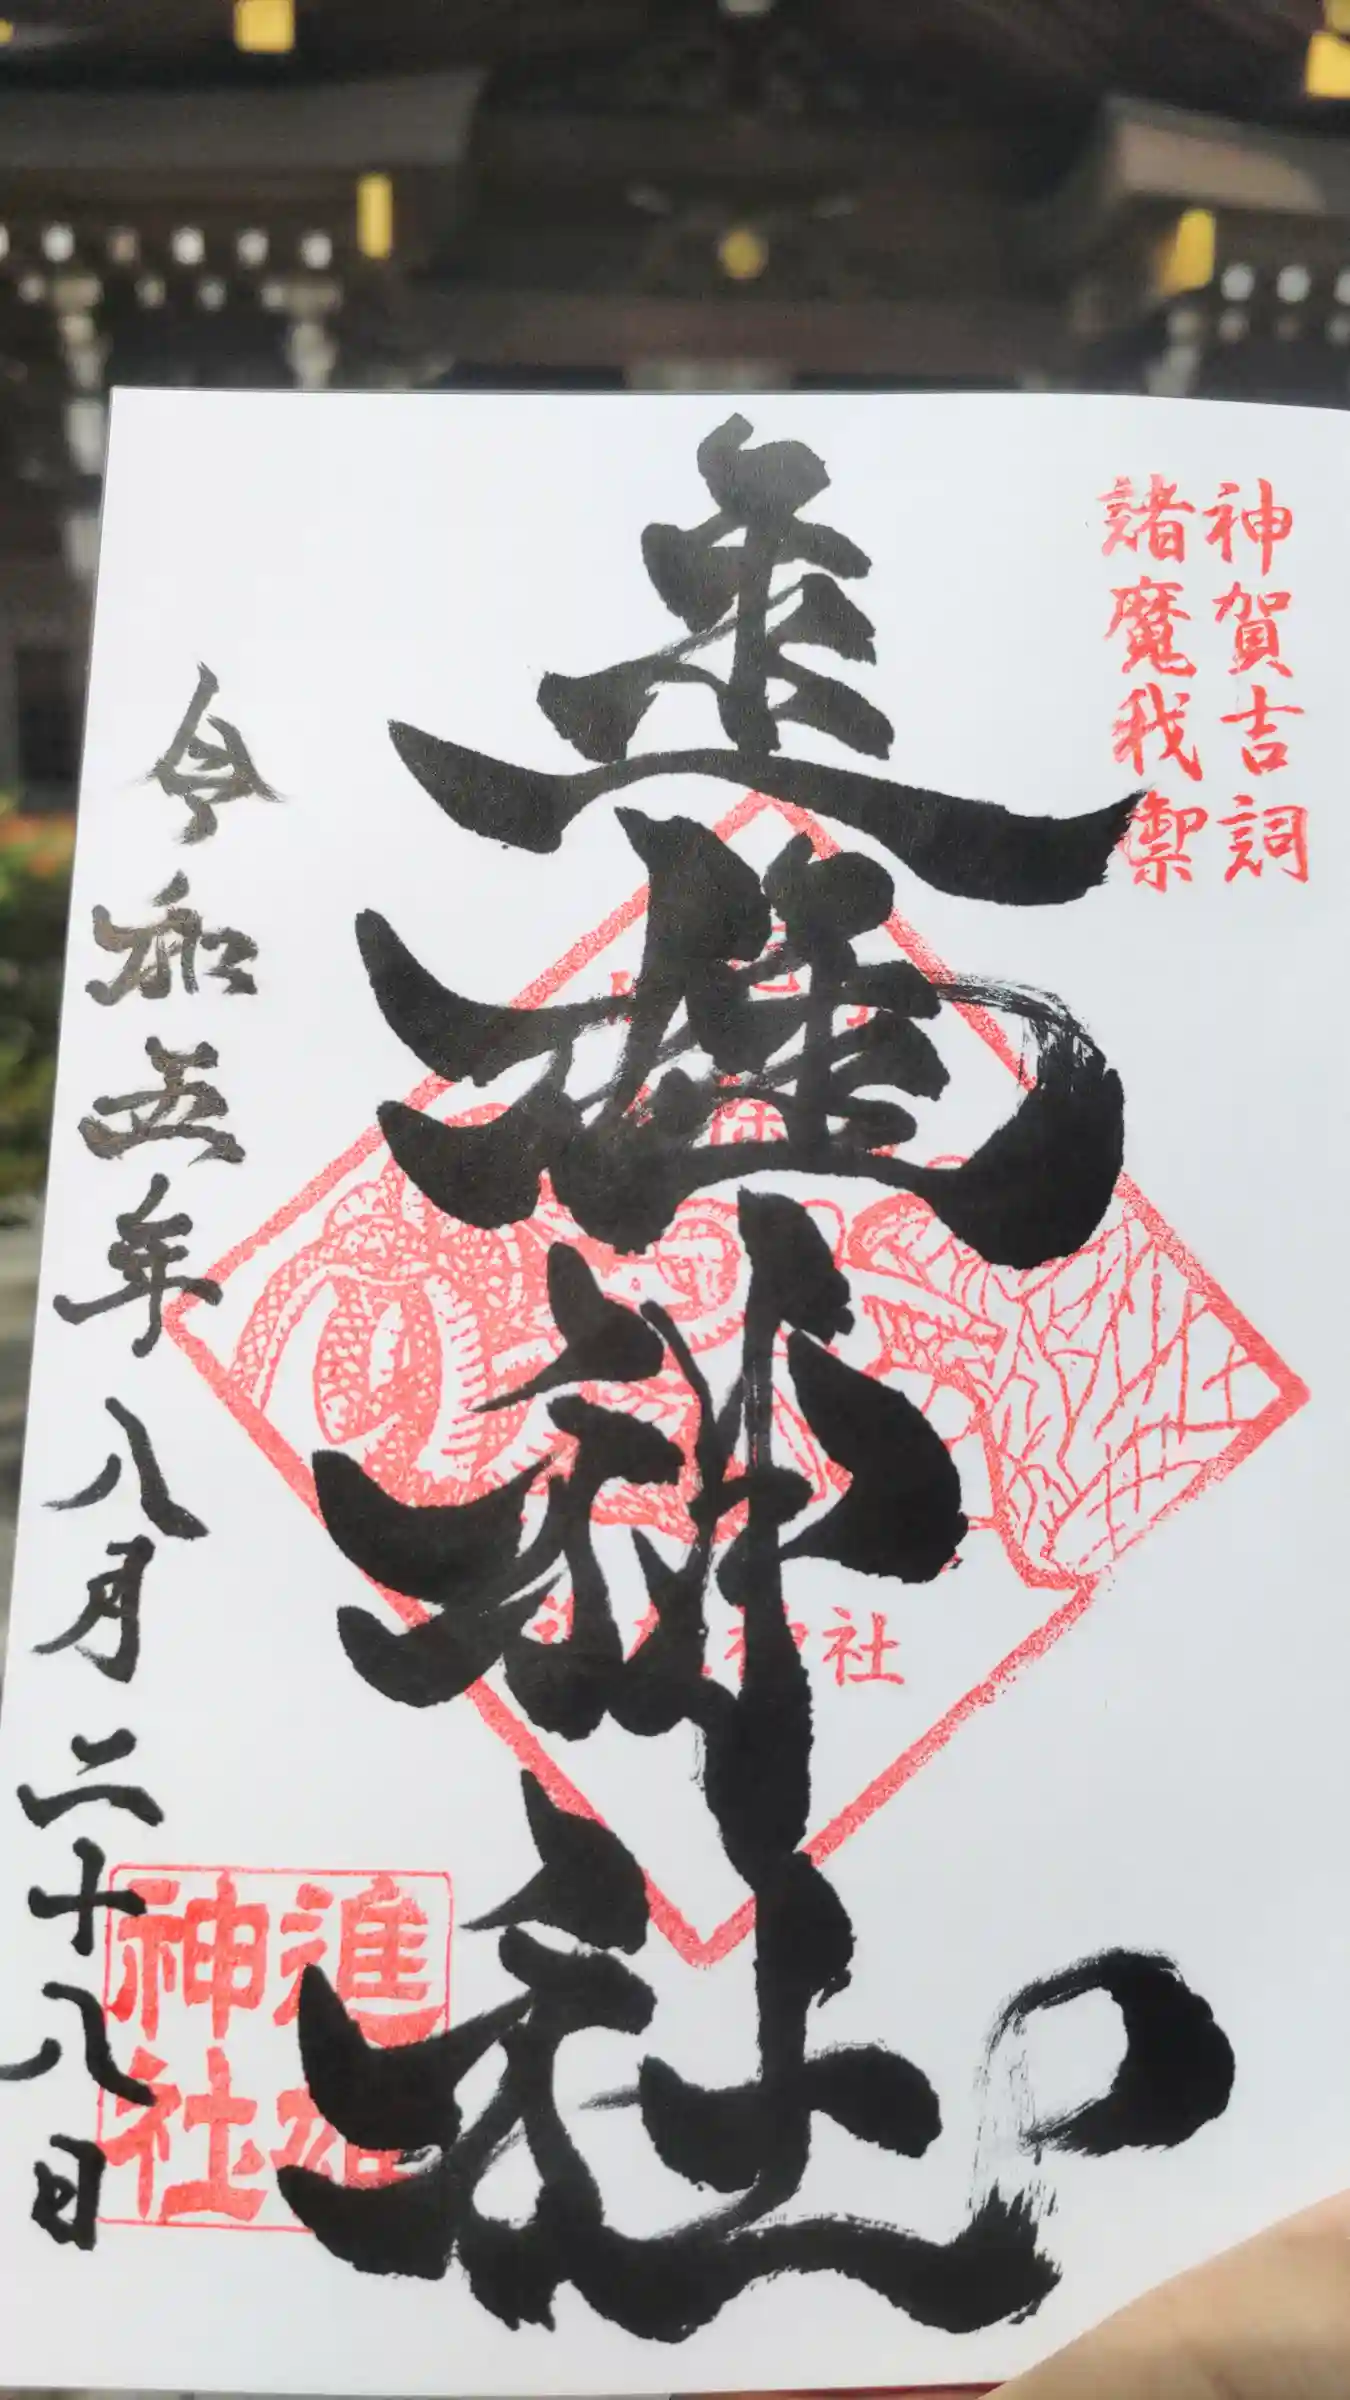 神賀吉詞
諸魔我禦
進雄神社
神社
進雄
神社
令和五年八月二十八日